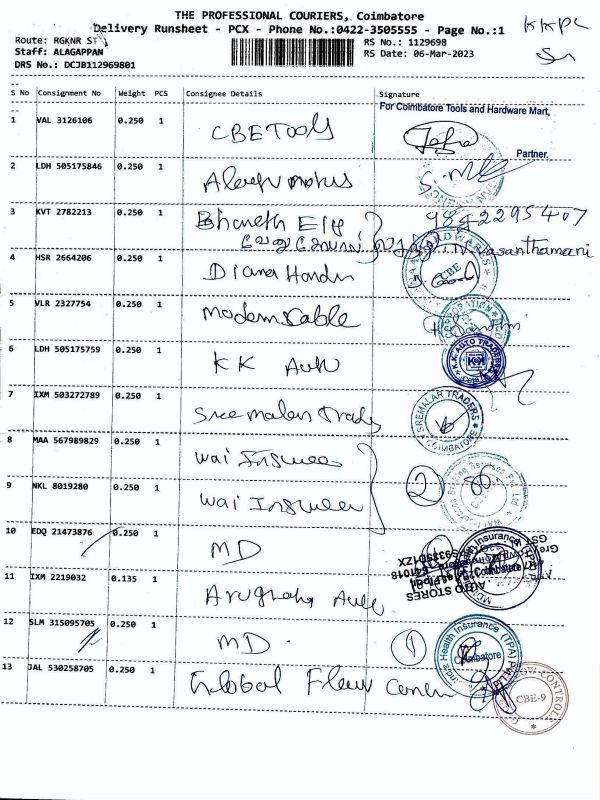 THE PROFESSIONAL COURIERS, Coimbatore
Delivery Runsheet - PCX - Phone No.:0422-3505555 - Page No.:1
KKPC
Route: RGKNR ST
RS No.: 1129698
Staff: ALAGAPPAN
RS Date: 06-Mar-2023
DRS No.: DCJB112969801
S No Consignment No Weight PCS Consignee Details Signature
For Coimbatore Tools and Hardware Mart,
1 VAL 3126106 0.250 1 CBE Tools
Partner.
2 LDH 505175846 0.250 1
3 KVT 2782213 0.250 1 Bharath 9842295407
Vasanthamani
4 HSR 2664206 0.250 1 Diana
CBE
5 VLR 2327754 0.250 1 Modern Cable
CORPORATION
6 LDH 505175759 0.250 1 KK Auto
K.K. AUTO TRADERS
7 IXM 503272789 0.250 1 Sree malar Trades
SREMALAR TRADERS
COIMBATORE
8 MAA 567989829 0.250 1 Wai
9 NKL 8019280 0.250 1 Wai 2
10 EDQ 21473876 0.250 1 MD
Health Insurance
Coimbatore
641018
AUTO STORES
11 IXM 2219032 0.135 1 Auto
12 SLM 315095705 0.250 1 MD 1
Health Insurance (TPA)
Coimbatore
13 JAL 530258705 0.250 1 Global Flow
FLOW CONTROLS
CBE-9